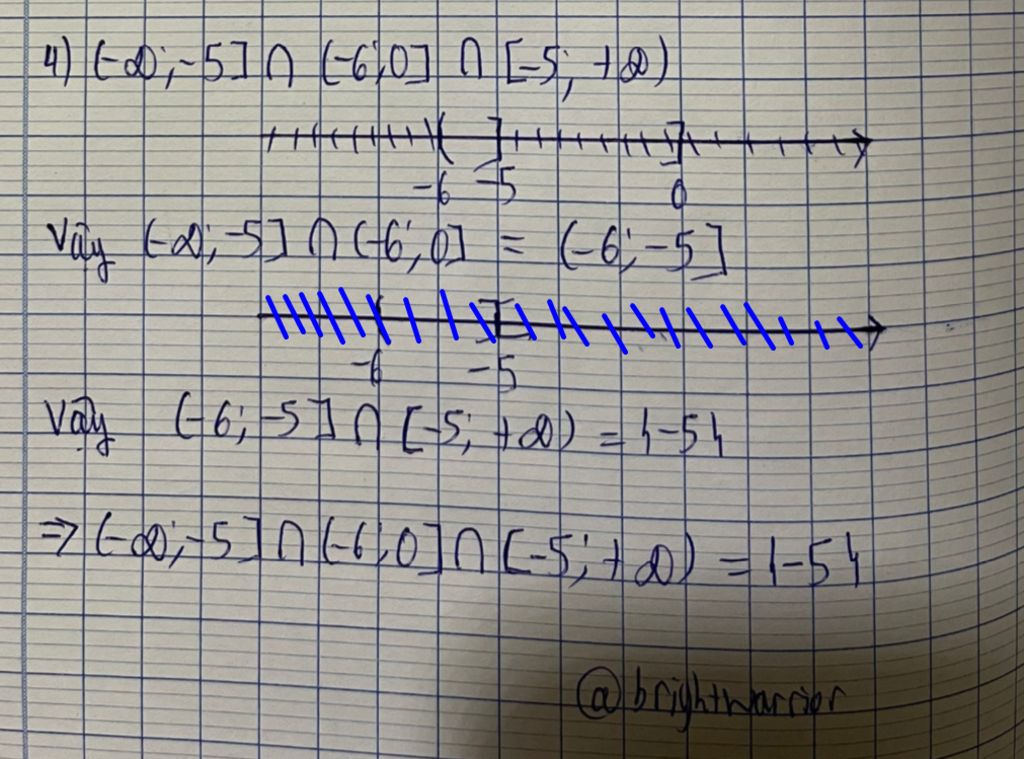 4) (-∞; -5] ∩ (-6; 0] ∩ [-5; +∞)
-6 -5 0
Vậy (-∞; -5] ∩ (-6; 0] = (-6; -5]
-6 -5
Vậy (-6; -5] ∩ [-5; +∞) = {-5}
=> (-∞; -5] ∩ (-6; 0] ∩ [-5; +∞) = {-5}
@brightwarrior